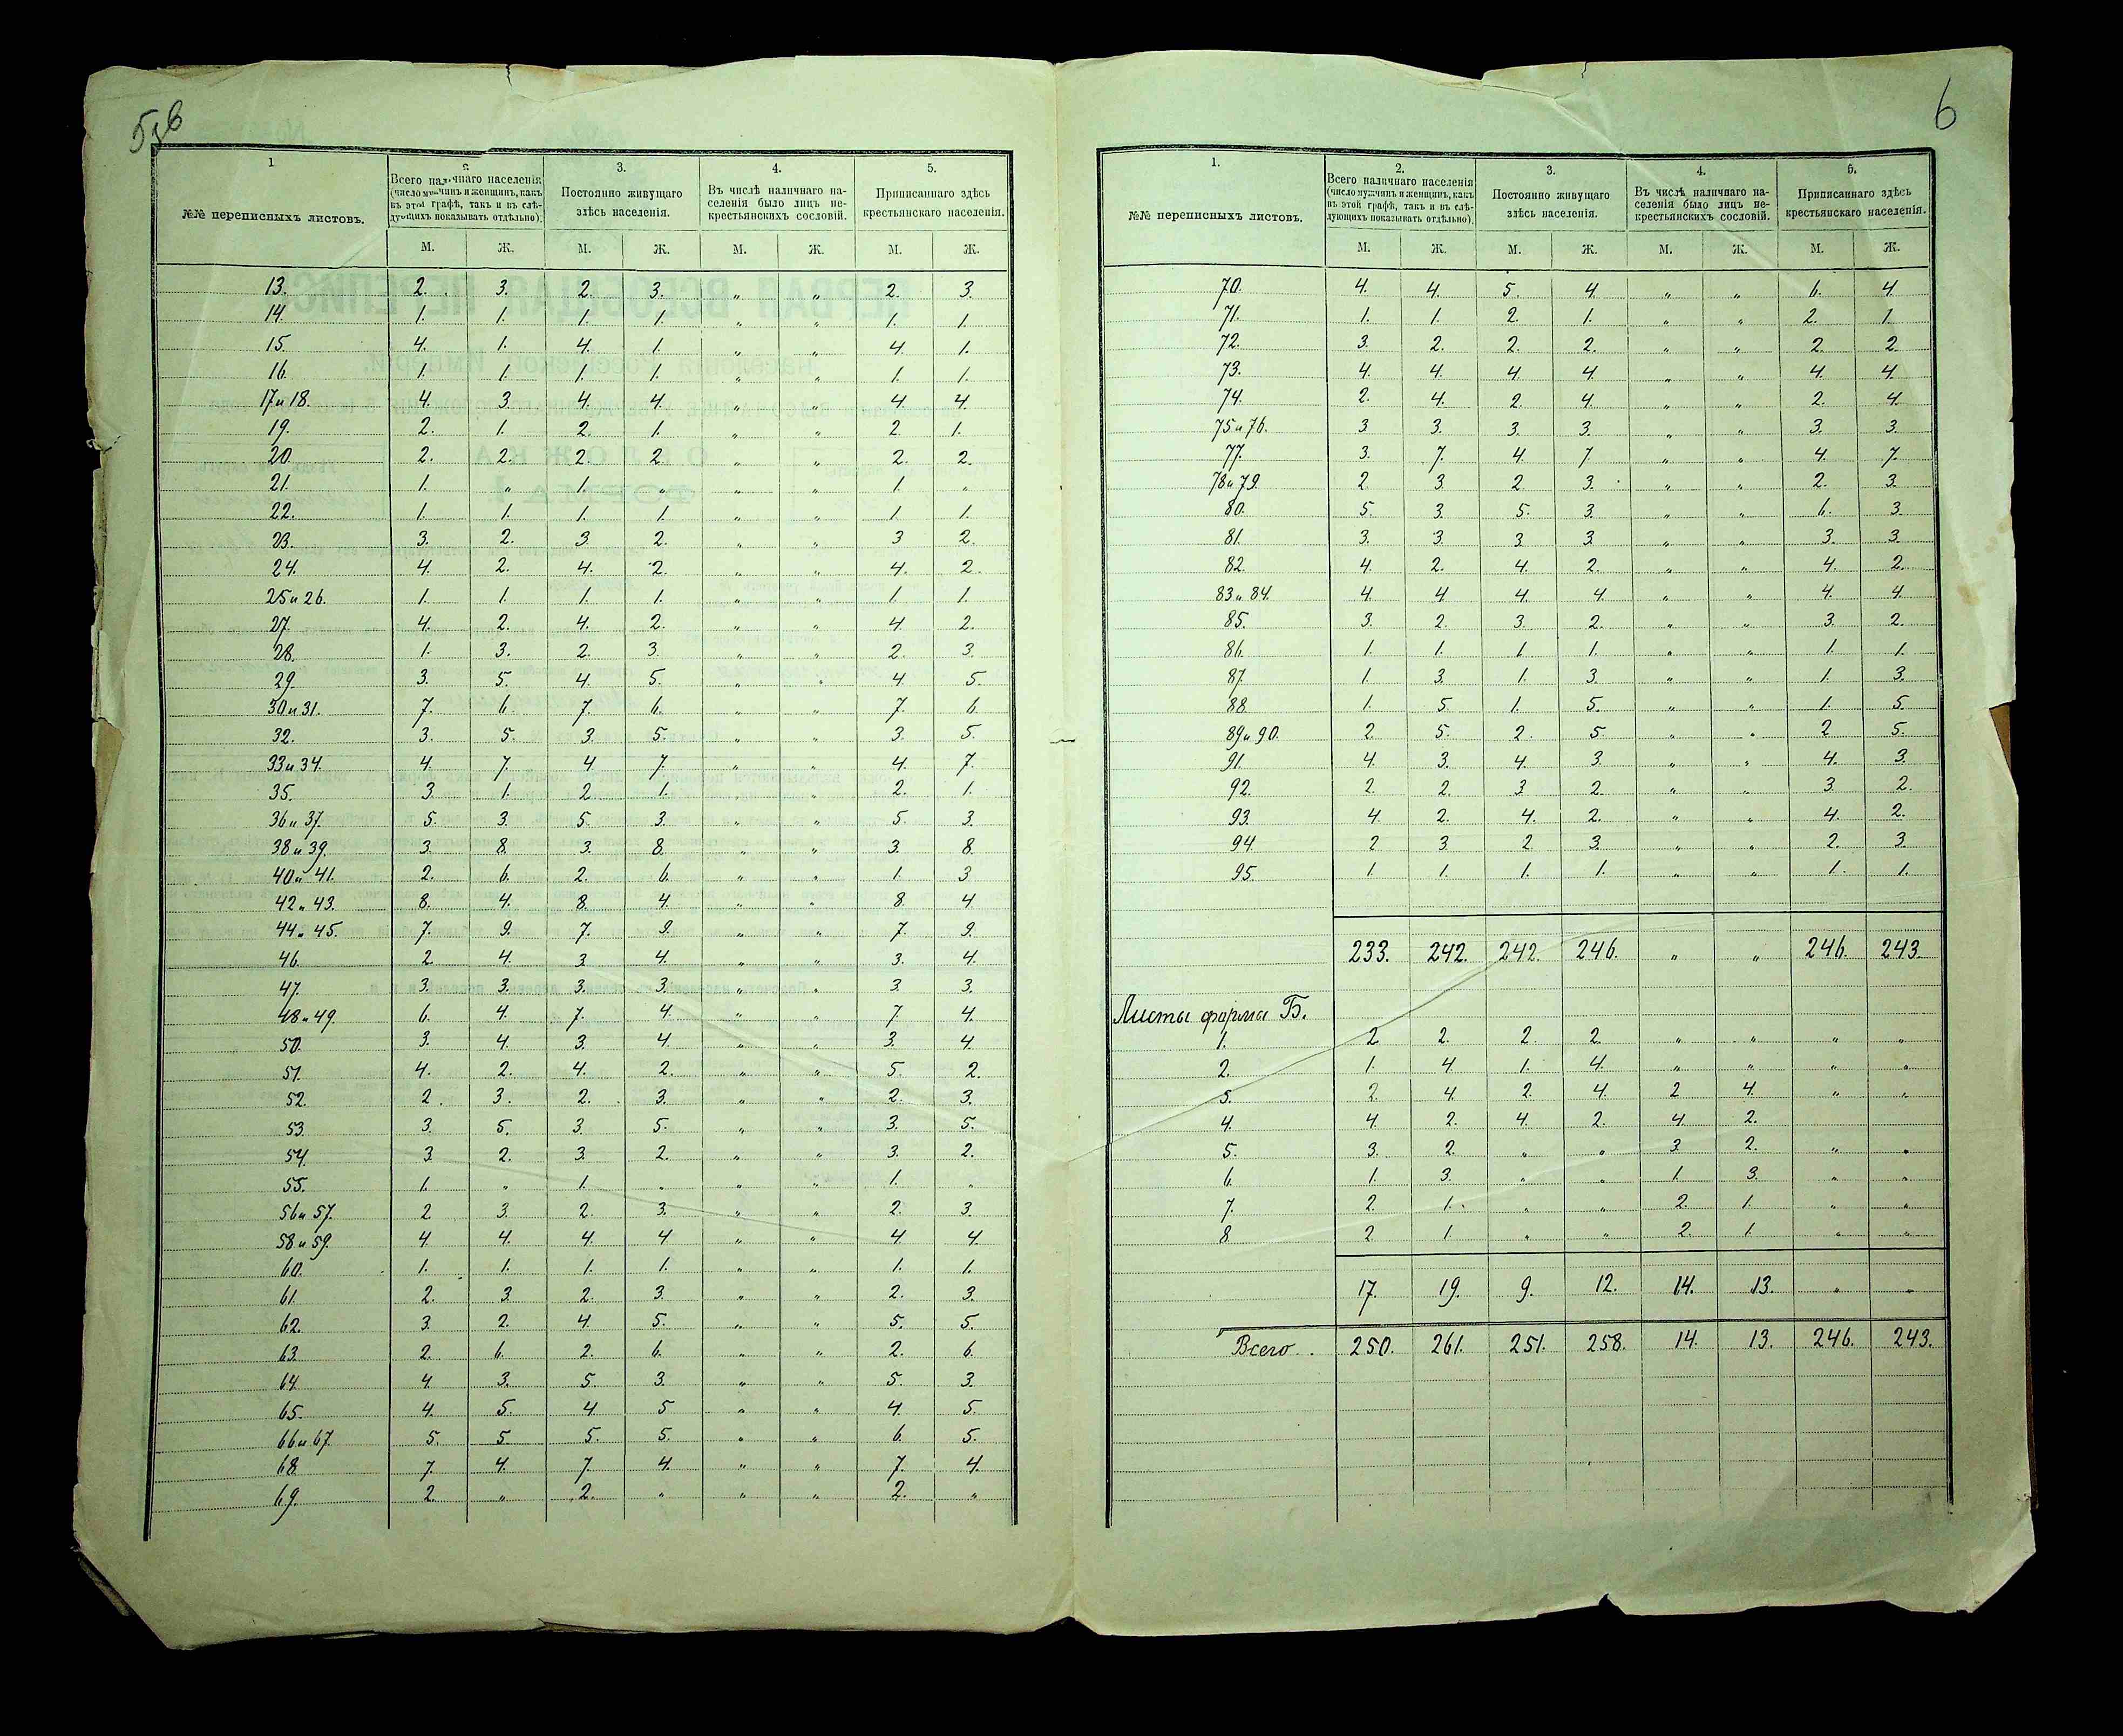 5об
1 2. 3. 4. 5.
№№ переписныхъ листовъ. Всего наличнаго населенія (число мужчинъ и женщинъ, какъ въ этой графѣ, такъ и въ слѣдующихъ показывать отдѣльно). Постоянно живущаго здѣсь населенія. Въ числѣ наличнаго населенія было лицъ некрестьянскихъ сословій. Приписаннаго здѣсь крестьянскаго населенія.
М. Ж. М. Ж. М. Ж. М. Ж.
13. 2. 3. 2. 3. „ „ 2. 3.
14. 1. 1. 1. 1. „ „ 1. 1.
15. 4. 1. 4. 1. „ „ 4. 1.
16. 1. 1. 1. 1. „ „ 1. 1.
17 и 18. 4. 3. 4. 4. „ „ 4. 4.
19. 2. 1. 2. 1. „ „ 2. 1.
20. 2. 2. 2. 2. „ „ 2. 2.
21. 1. „ 1. „ „ „ 1. „
22. 1. 1. 1. 1. „ „ 1. 1.
23. 3. 2. 3 2. „ „ 3 2.
24. 4. 2. 4. 2. „ „ 4. 2.
25 и 26. 1. 1. 1. 1. „ „ 1. 1.
27. 4. 2. 4. 2. „ „ 4 2.
28. 1. 3. 2. 3. „ „ 2. 3.
29. 3. 5. 4. 5. „ „ 4 5.
30 и 31. 7. 6. 7. 6. „ „ 7. 6.
32. 3. 5. 3. 5. „ „ 3. 5.
33 и 34. 4. 7. 4. 7. „ „ 4. 7.
35. 3. 1. 2. 1. „ „ 2. 1.
36 и 37. 5. 3. 5. 3. „ „ 5. 3.
38 и 39. 3. 8. 3. 8. „ „ 3. 8.
40 и 41. 2. 6. 2. 6. „ „ 1. 3
42 и 43. 8. 4. 8. 4. „ „ 8. 4
44 и 45. 7. 9. 7. 9. „ „ 7. 9.
46. 2. 4. 3. 4. „ „ 3. 4.
47. 3. 3. 3. 3. „ „ 3. 3.
48 и 49. 6. 4. 7. 4. „ „ 7. 4.
50. 3. 4. 3. 4. „ „ 3. 4
51. 4. 2. 4. 2. „ „ 5. 2.
52. 2. 3. 2. 3. „ „ 2. 3.
53. 3. 5. 3. 5. „ „ 3. 5.
54. 3. 2. 3. 2. „ „ 3. 2.
55. 1. „ 1. „ „ „ 1. „
56 и 57. 2 3. 2. 3. „ „ 2. 3.
58 и 59. 4. 4. 4. 4 „ „ 4 4.
60. 1. 1. 1. 1. „ „ 1. 1.
61. 2. 3. 2. 3. „ „ 2. 3.
62. 3. 2. 4. 5. „ „ 5. 5.
63. 2. 6. 2. 6. „ „ 2. 6
64. 4. 3. 5. 3. „ „ 5. 3.
65. 4. 5. 4. 5 „ „ 4. 5.
66 и 67. 5. 5. 5. 5. „ „ 6. 5.
68. 7. 4. 7. 4. „ „ 7. 4.
69. 2. „ 2. „ „ „ 2. „
6
1. 2. 3. 4. 5.
№№ переписныхъ листовъ. Всего наличнаго населенія (число мужчинъ и женщинъ, какъ въ этой графѣ, такъ и въ слѣдующихъ показывать отдѣльно). Постоянно живущаго здѣсь населенія. Въ числѣ наличнаго населенія было лицъ некрестьянскихъ сословій. Приписаннаго здѣсь крестьянскаго населенія.
М. Ж. М. Ж. М. Ж. М. Ж.
70. 4. 4. 5. 4. „ „ 6. 4.
71. 1. 1. 2. 1. „ „ 2. 1.
72. 3. 2. 2. 2. „ „ 2. 2.
73. 4. 4. 4 4. „ „ 4. 4.
74. 2. 4. 2. 4. „ „ 2. 4.
75 и 76. 3 3. 3. 3. „ „ 3. 3.
77. 3. 7. 4 7 „ „ 4. 7.
78 и 79. 2 3. 2 3. „ „ 2. 3.
80. 5. 3. 5. 3. „ „ 6. 3
81. 3. 3. 3 3. „ „ 3. 3.
82. 4. 2. 4. 2. „ „ 4. 2.
83 и 84. 4. 4 4. 4 „ „ 4. 4.
85. 3. 2. 3. 2. „ „ 3. 2.
86. 1. 1. 1. 1. „ „ 1. 1.
87. 1. 3. 1. 3. „ „ 1. 3.
88. 1. 5. 1. 5. „ „ 1. 5.
89 и 90. 2 5. 2. 5 „ „ 2 5.
91. 4. 3. 4. 3 „ „ 4. 3.
92. 2. 2. 3 2. „ „ 3. 2.
93. 4. 2. 4. 2. „ „ 4. 2.
94 2 3 2 3. „ „ 2. 3.
95. 1. 1. 1. 1. „ „ 1. 1.
233. 242. 242. 246. „ „ 246. 243.
Листы форма Б.
1. 2 2. 2. 2. „ „ „ „
2. 1. 4. 1. 4. „ „ „ „
3. 2. 4. 2. 4. 2 4. „ „
4. 4 2. 4. 2. 4. 2.
5. 3. 2. „ „ 3. 2. „ „
6. 1. 3. „ „ 1. 3. „ „
7. 2. 1. „ „ 2. 1. „ „
8. 2 1. „ „ 2. 1. „ „
17. 19. 9. 12. 14. 13. „ „
Всего . 250. 261. 251. 258. 14. 13. 246. 243.